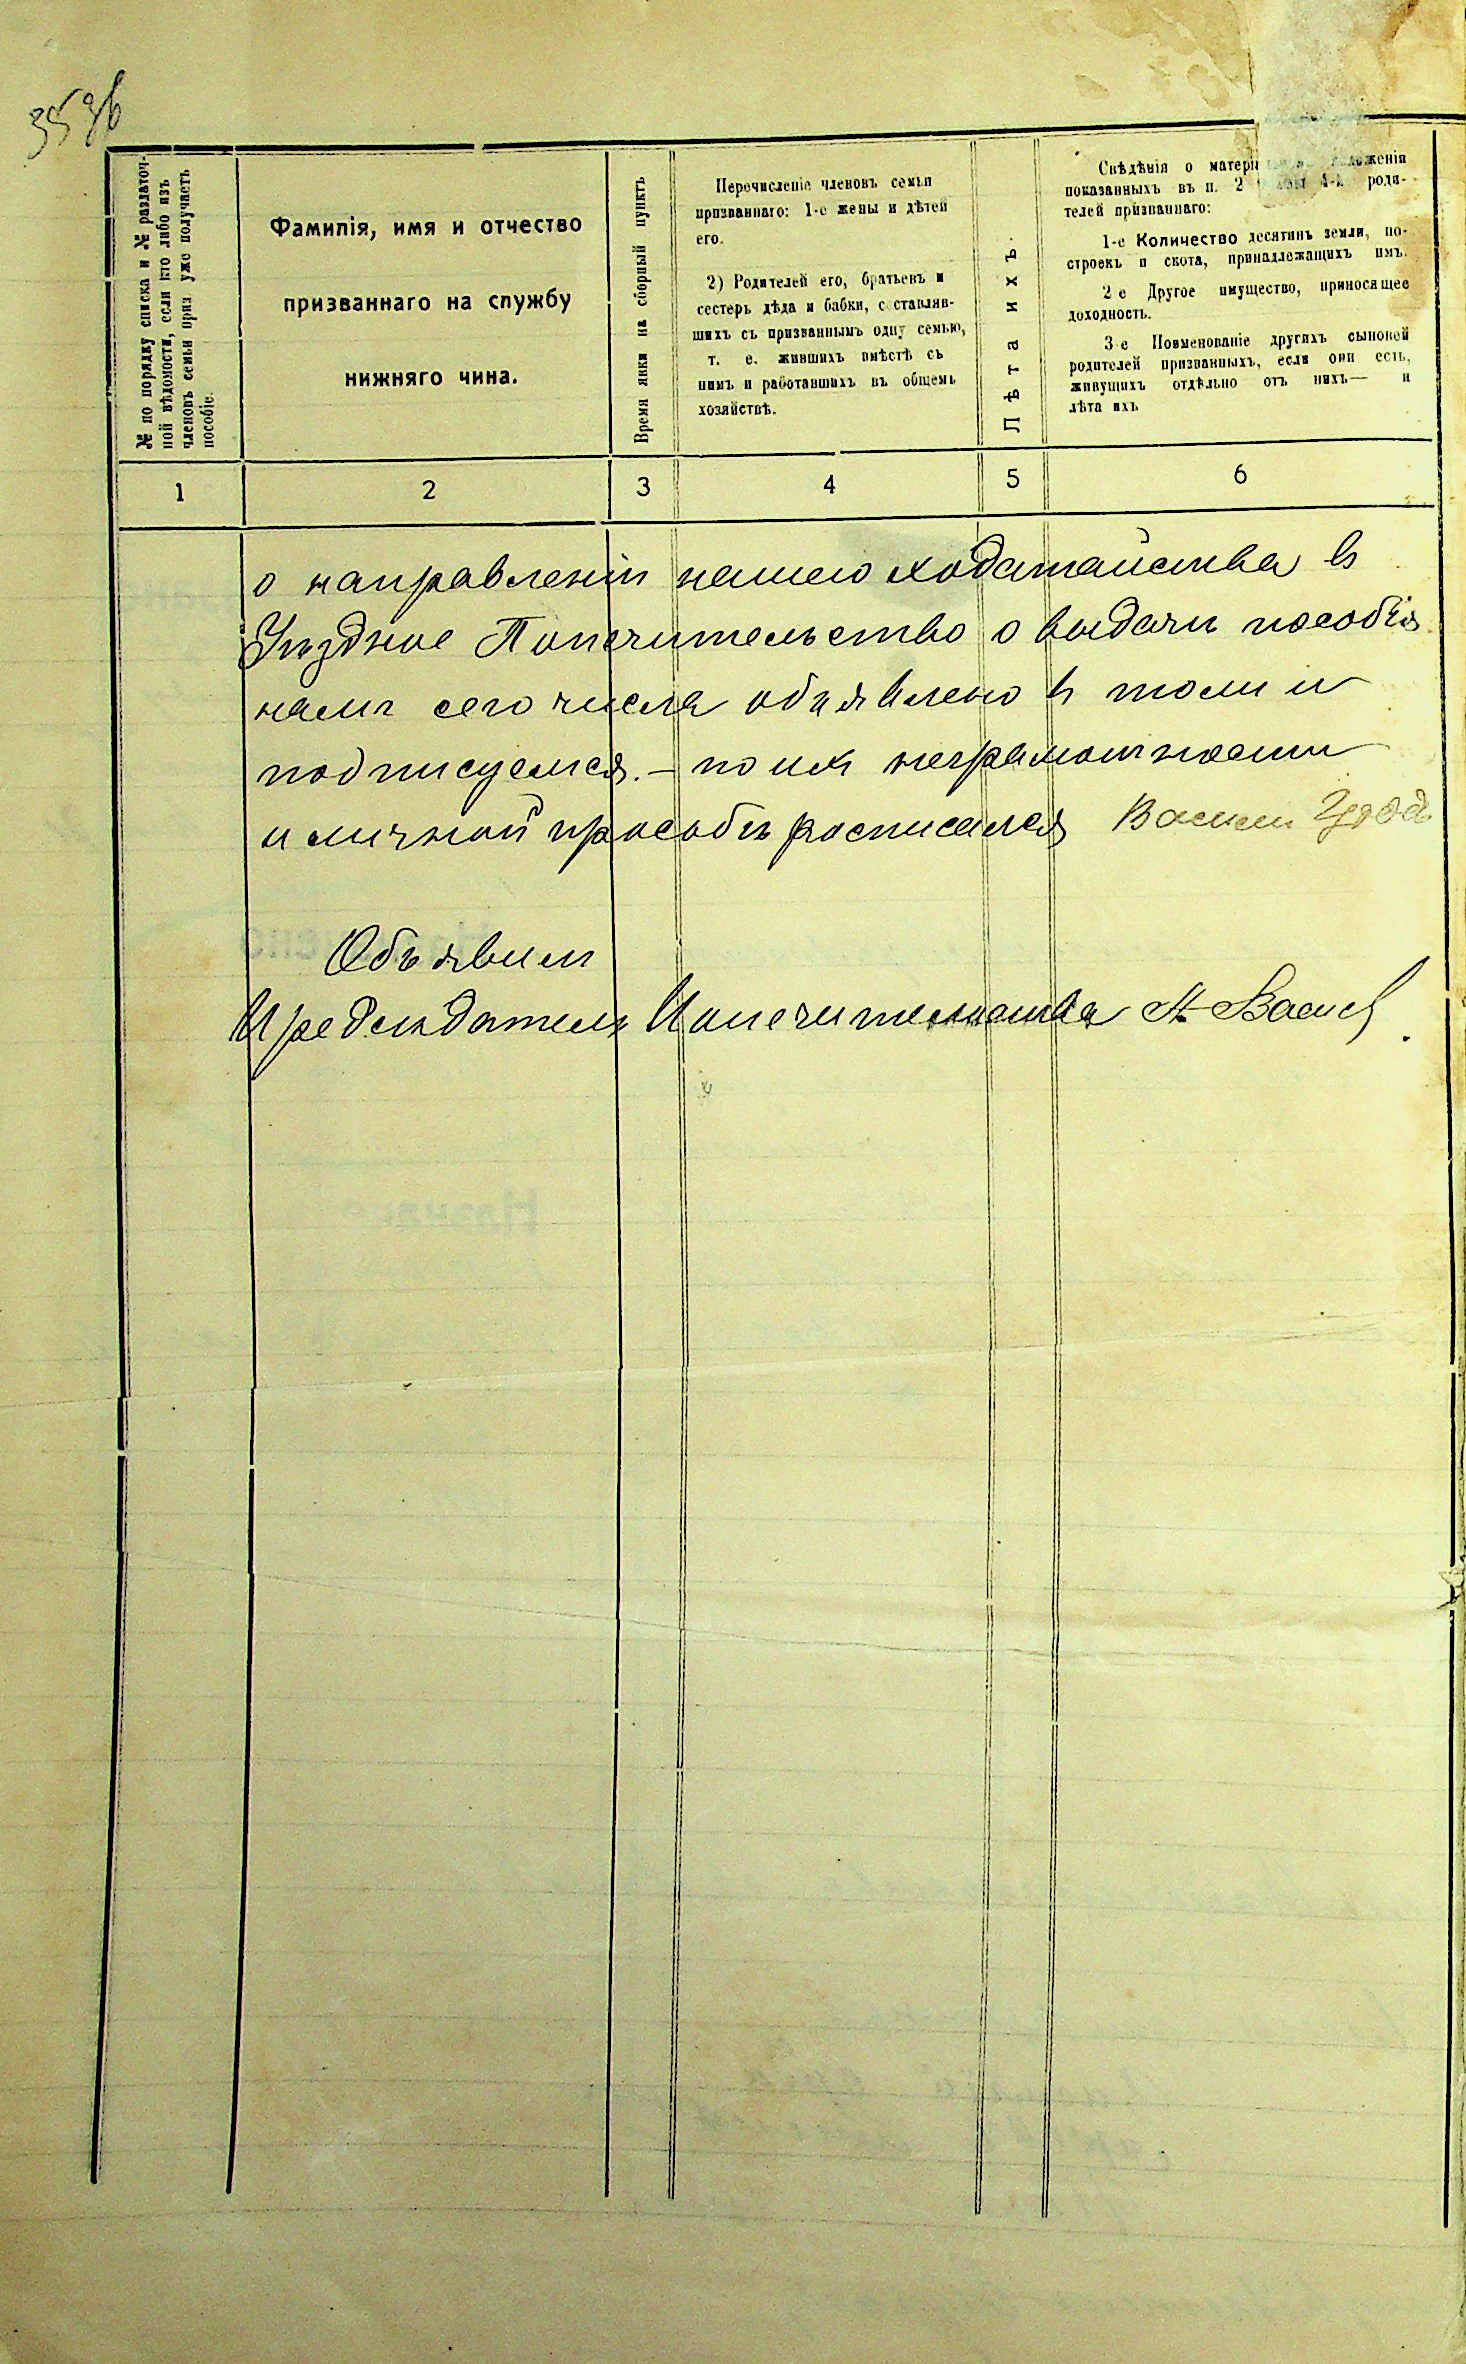 № по порядку списка и № раздаточ-
ной вѣдомости, если кто либо изъ
членовъ семьи приз уже получаетъ
пособіе.
Фамилія, имя и отчество
призваннаго на службу
нижняго чина.
Время явки на сборный пунктъ
Перечисленіе членовъ семьи
призваннаго: 1-е жены и дѣтей
его.
2) Родителей его, братьевъ и
сестеръ дѣда и бабки, составляв-
шихъ съ призваннымъ одну семью,
т. е. жившихъ вмѣстѣ съ
нимъ и работавшихъ въ общемъ
хозяйствѣ.
Лѣта ихъ.
Свѣдѣнія о матери
показанныхъ въ п. 2 роди-
телей призваннаго:
1-е Количество десятинъ земли, по-
строекъ и скота, принадлежащихъ имъ.
2 е Другое имущество, приносящее
доходность.
3-е Поименованіе другихъ сыновей
родителей призванныхъ, если они есть,
живущихъ отдѣльно отъ нихъ— и
лѣта ихъ
1 2 3 4 5 6
о направленіи нашего ходатайства в
Уѣздное Попечительство о выдачѣ пособія
намъ сего числа объявлено в томъ и
подписуемся. – по их неграмотности
и личной прособѣ росписался
Объявилъ
Председатель Попечительства